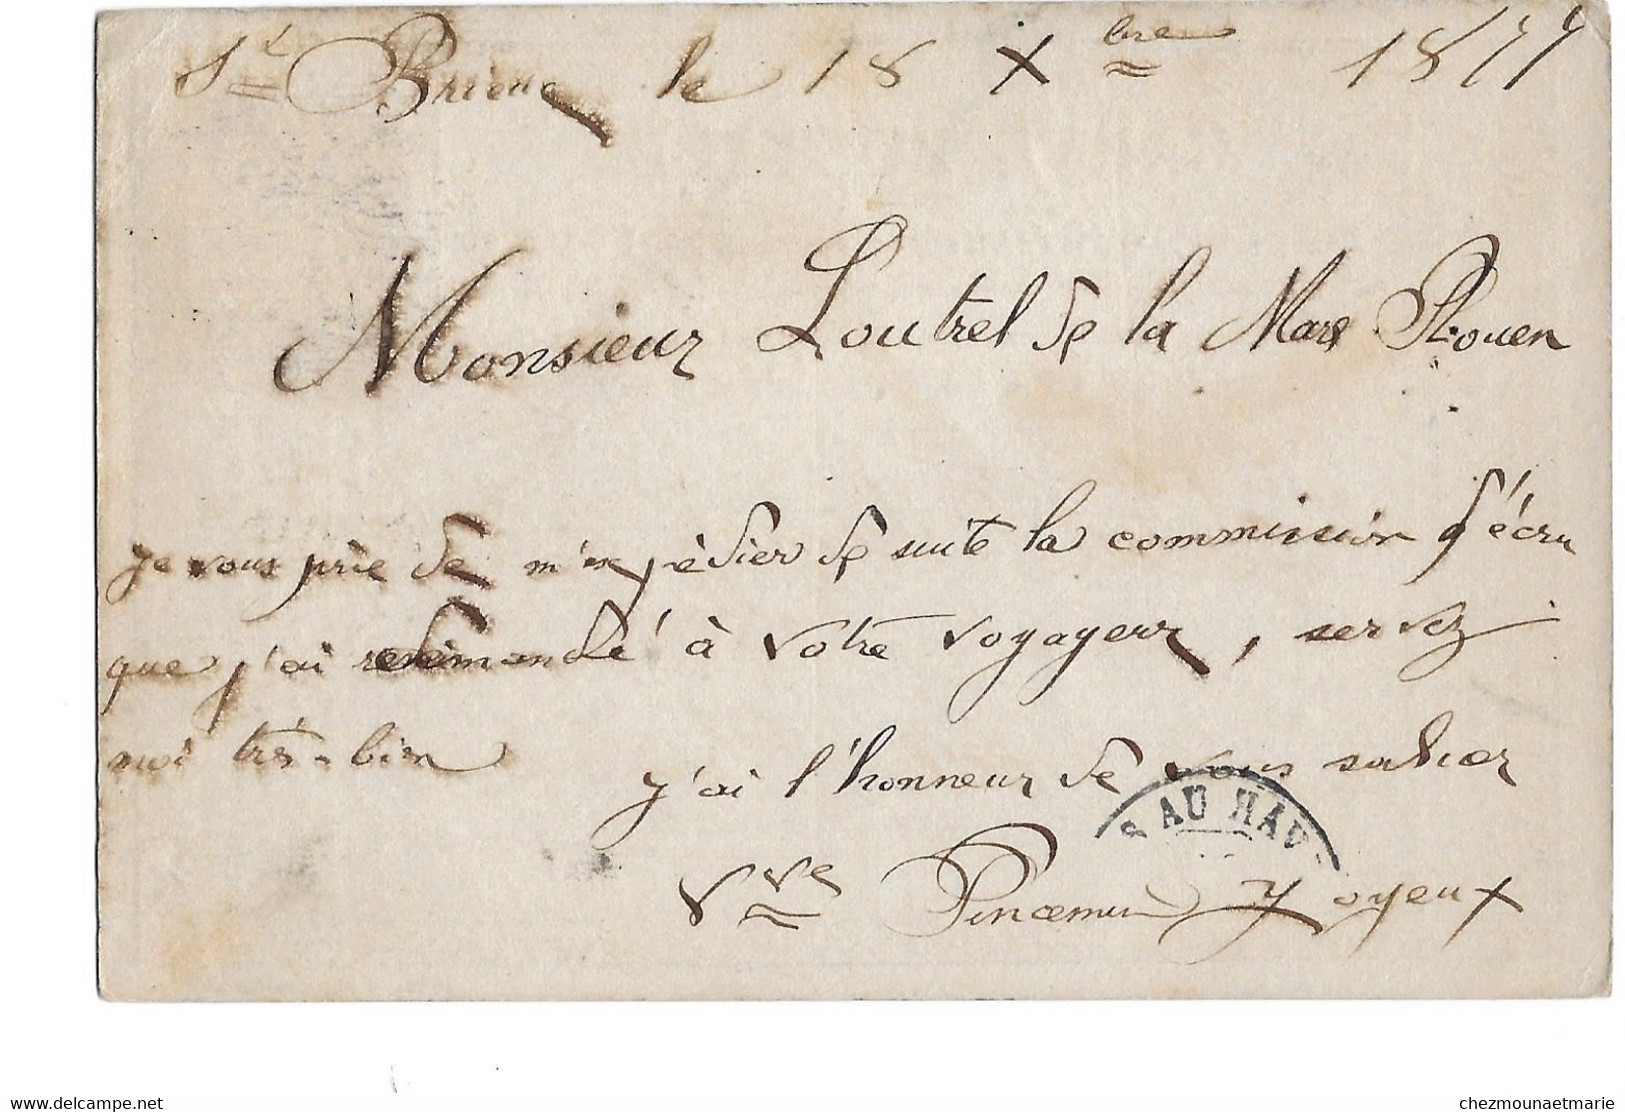 St Brieuc le 18 Xbre 1877
Monsieur Loutrel de la Mare Rouen
je vous prie de m'expédier de suite la commission d'écru
que j'ai redemandé à votre voyageur, servez
moi très-bien
j'ai l'honneur de vous saluer
AU HAV
Vve Pincemin Joyeux
www.delcampe.net
chezmounaetmarie